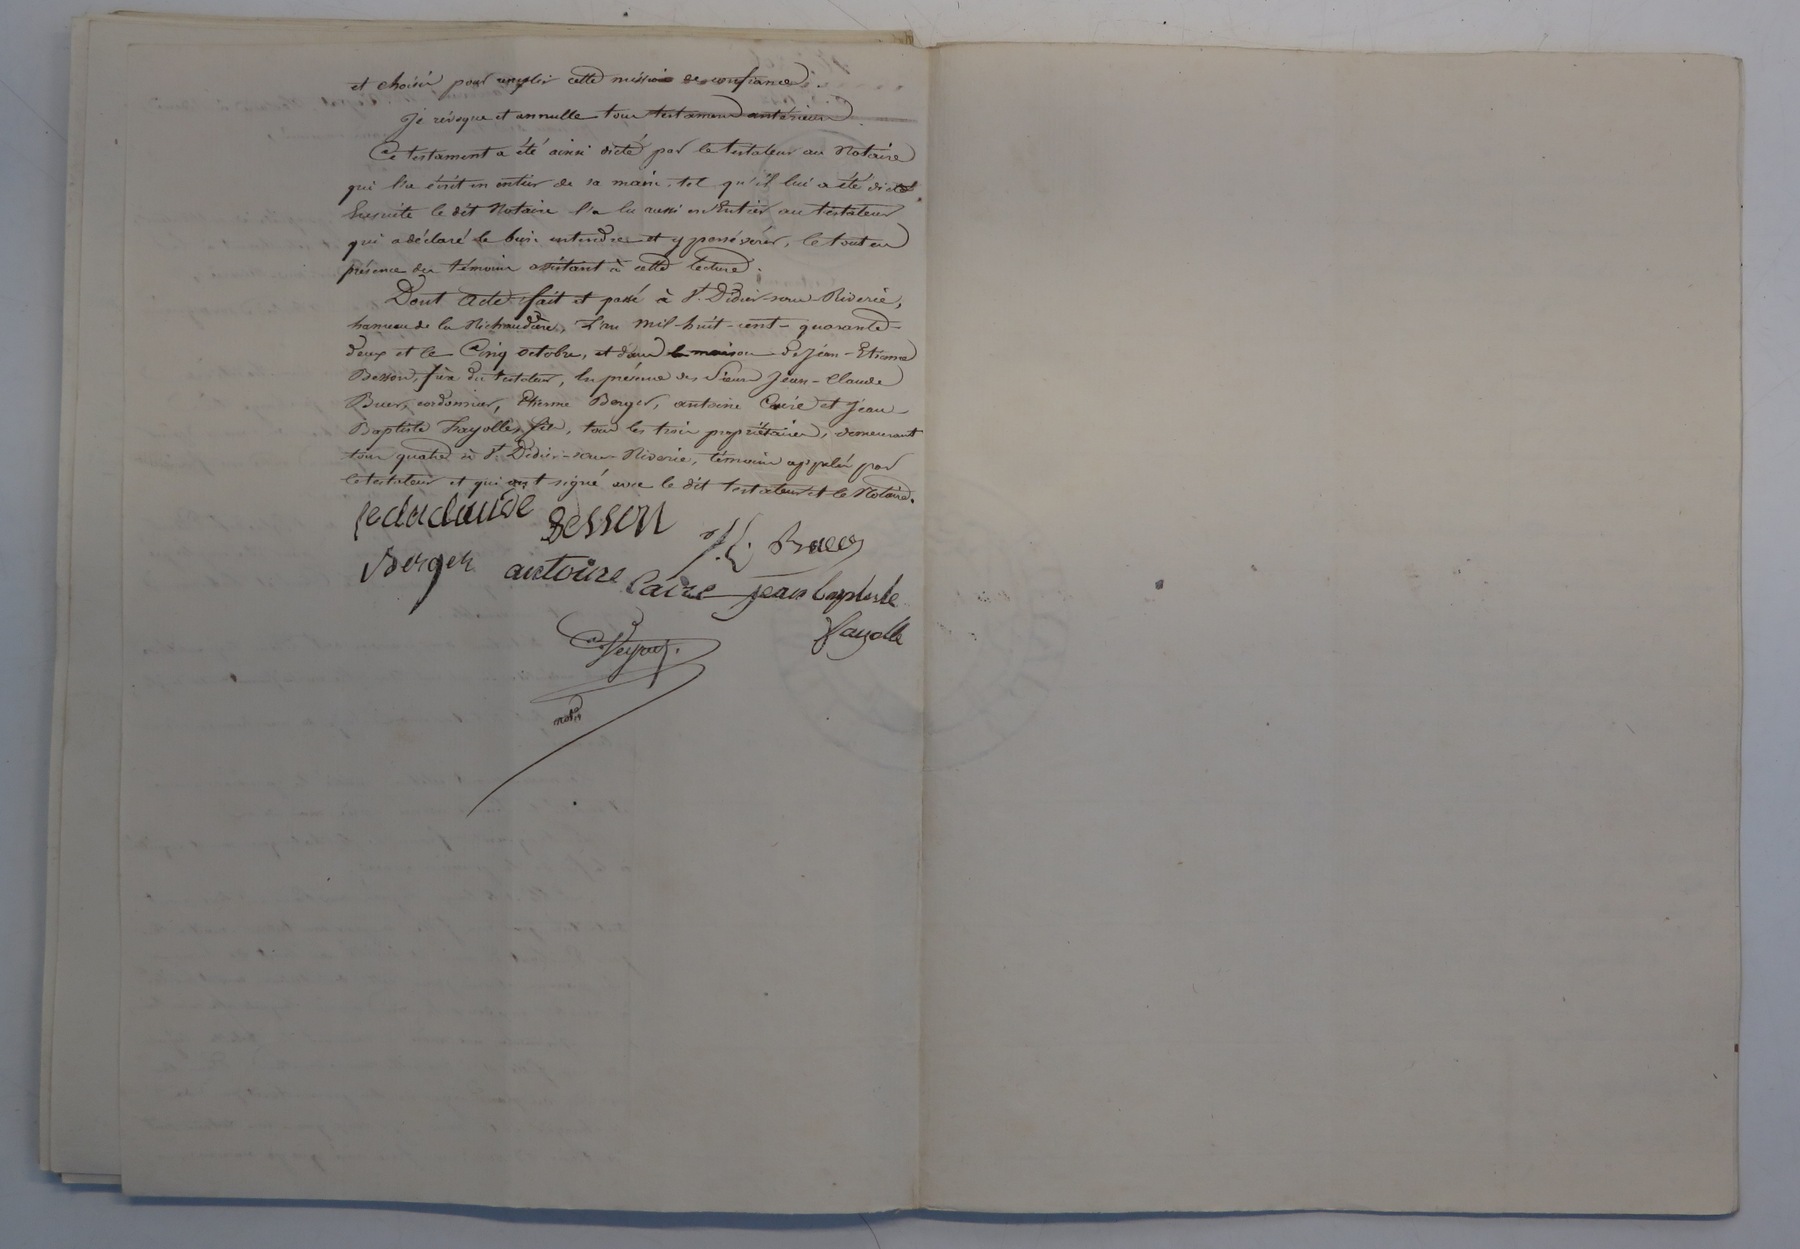 et choisir pour remplir cette mission de confiance.
Je révoque et annulle tous testamens antérieurs.
Ce testament a été ainsi dicté par le testateur au Notaire
qui l'a écrit en entier de sa main, tel qu'il lui a été dicté
Ensuite le dit Notaire l'a lu aussi en Entier au testateur
qui a déclaré le bien entendre et y persévérer, le tout en
présence des témoins assistant à cette lecture.
Dont Acte fait et passé à St. Didier-sous-Riverie,
hameau de la Richaudière, L'an mil-huit-cent-quarante-
deux et le Cinq octobre, et dans la maison de Jean-Etienne
Besson, frère du testateur, En présence des Sieurs Jean-Claude
cordonnier, Etienne Berger, antoine Caire et Jean-
Baptiste Fayolle, fils, tous les trois propriétaires, demeurant
tous quatre à St. Didier-sous-Riverie, témoins appelés par
le testateur et qui ont signé avec le dit testateur et le Notaire.
Besson
Berger antoine Caire jean baptiste
fayolle